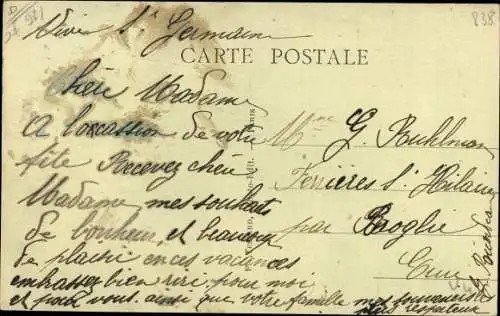 Vive St Germain
CARTE POSTALE
Chère Madame
A l'occassion de votre
fête Recevez chère
Madame mes souhaits
de bonheur, et beaucoup
de plaisir en ces vacances
embrassez bien riri pour moi
et pour vous ainsi que votre famille mes souvenirs
plus respectueux
Mme G.
Ferrières St Hilaire
par Broglie
Eure
838